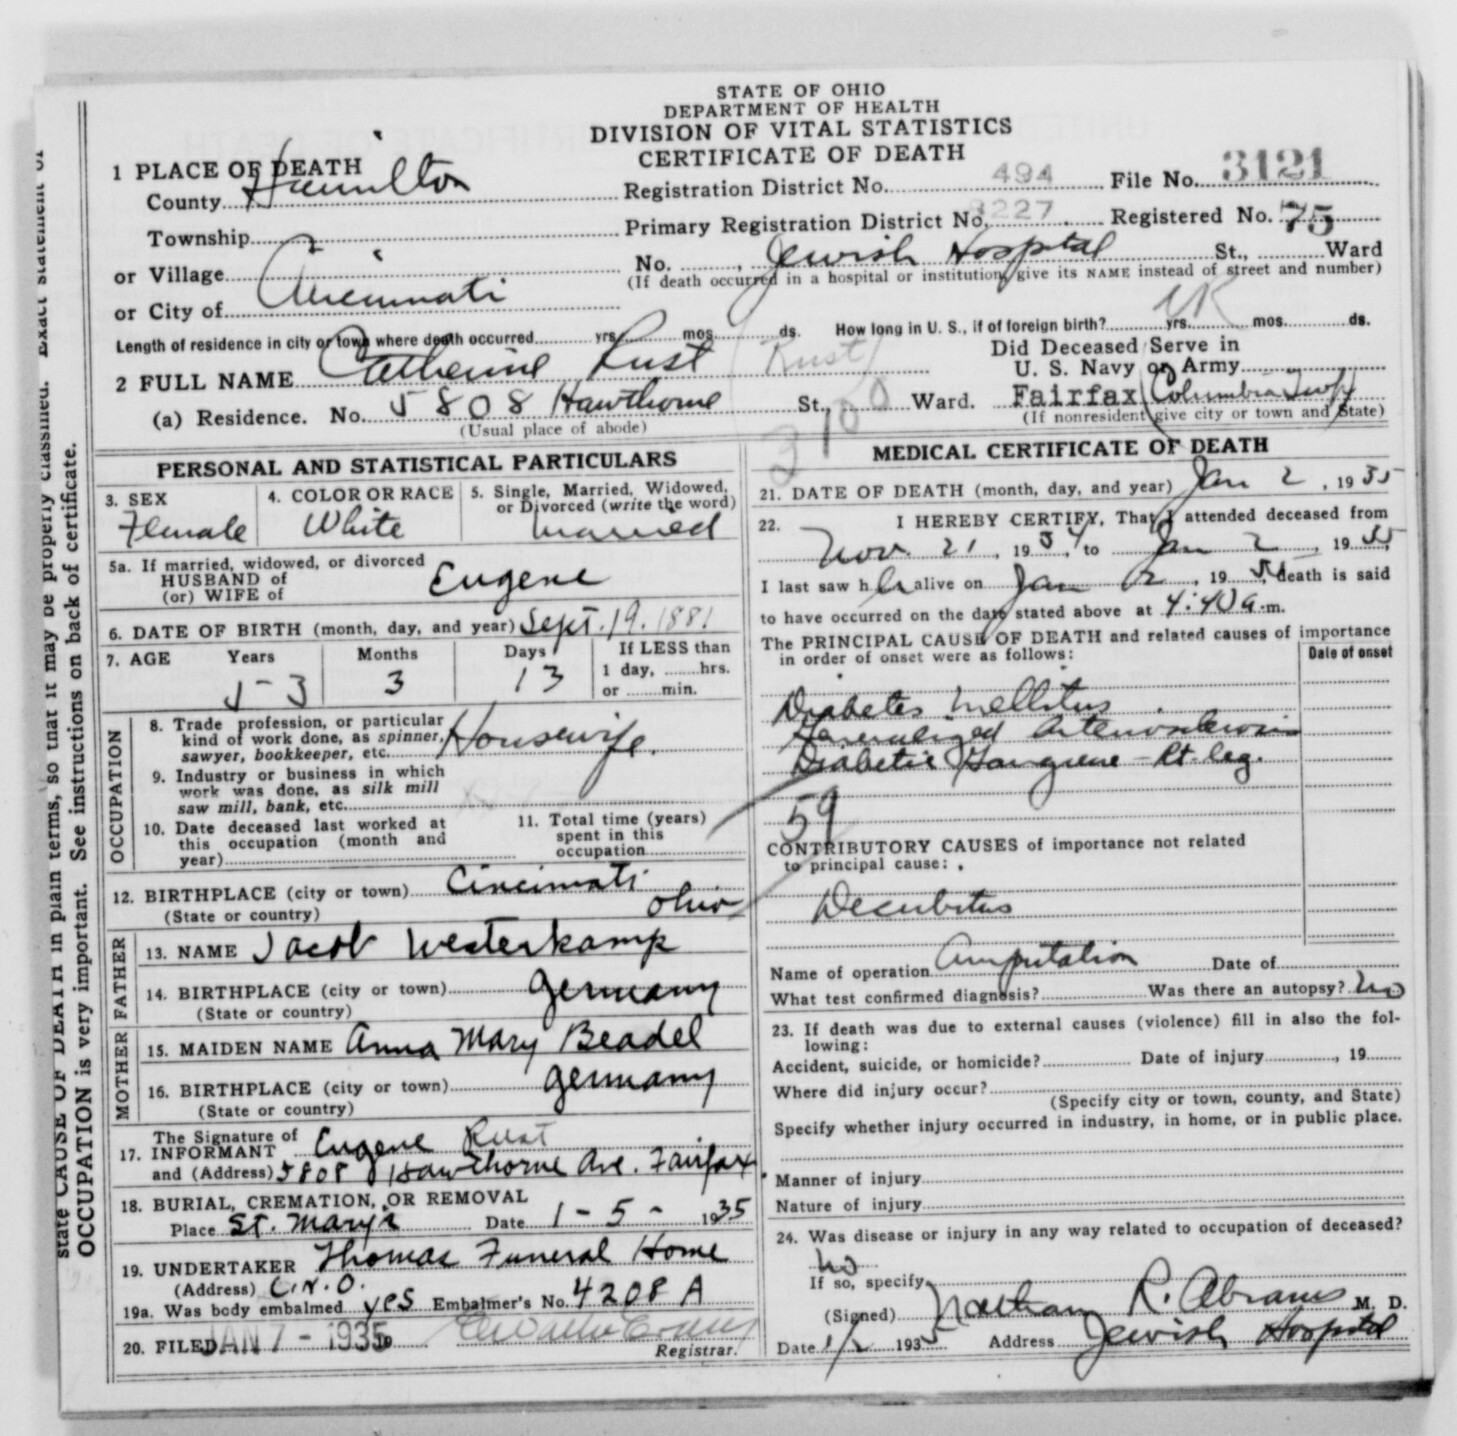 STATE OF OHIO
DEPARTMENT OF HEALTH
DIVISION OF VITAL STATISTICS
CERTIFICATE OF DEATH
1 PLACE OF DEATH
County Hamilton
Registration District No. 494 File No. 3121
Township
Primary Registration District No. 8227 Registered No. 75
or Village
No. , Jewish Hospital St., Ward
(If death occurred in a hospital or institution, give its NAME instead of street and number)
or City of Cincinnati
Length of residence in city or town where death occurred yrs. mos. ds. How long in U. S., if of foreign birth? yrs. mos. ds.
2 FULL NAME Catherine Rust (Rust)
Did Deceased Serve in
U. S. Navy or Army
(a) Residence. No. 5808 Hawthorne St., Ward. Fairfax (Columbia Twp)
(Usual place of abode) (If nonresident give city or town and State)
3100
PERSONAL AND STATISTICAL PARTICULARS
3. SEX Female
4. COLOR OR RACE White
5. Single, Married, Widowed, or Divorced (write the word) Married
5a. If married, widowed, or divorced
HUSBAND of
(or) WIFE of Eugene
6. DATE OF BIRTH (month, day, and year) Sept. 19. 1881
7. AGE Years Months Days If LESS than
1 day, hrs.
or min.
53 3 13
OCCUPATION
8. Trade profession, or particular
kind of work done, as spinner,
sawyer, bookkeeper, etc. Housewife.
9. Industry or business in which
work was done, as silk mill
saw mill, bank, etc.
10. Date deceased last worked at
this occupation (month and
year)
11. Total time (years)
spent in this
occupation
12. BIRTHPLACE (city or town) Cincinnati
(State or country) Ohio
FATHER
13. NAME Jacob Westerkamp
14. BIRTHPLACE (city or town) Germany
(State or country)
MOTHER
15. MAIDEN NAME Anna Mary Beadel
16. BIRTHPLACE (city or town) Germany
(State or country)
17. The Signature of
INFORMANT Eugene Rust
and (Address) 5808 Hawthorne Ave. Fairfax.
18. BURIAL, CREMATION, OR REMOVAL
Place St. Mary's Date 1-5- 1935
19. UNDERTAKER Thomas Funeral Home
(Address) C.N.O.
19a. Was body embalmed yes Embalmer's No. 4208 A
20. FILED JAN 7 - 1935 19
Registrar.
MEDICAL CERTIFICATE OF DEATH
21. DATE OF DEATH (month, day, and year) Jan 2, 1935
22. I HEREBY CERTIFY, That I attended deceased from
Nov. 21, 1934, to Jan 2, 1935
I last saw her alive on Jan 2, 19 , death is said
to have occurred on the date stated above at 4:40 a.m.
The PRINCIPAL CAUSE OF DEATH and related causes of importance
in order of onset were as follows:
Date of onset
Diabetes Mellitus
Generalized Arteriosclerosis
Diabetic Gangrene - Rt. leg.
59
CONTRIBUTORY CAUSES of importance not related
to principal cause:
Decubitus
Name of operation Amputation Date of
What test confirmed diagnosis? Was there an autopsy? No
23. If death was due to external causes (violence) fill in also the fol-
lowing:
Accident, suicide, or homicide? Date of injury , 19
Where did injury occur?
(Specify city or town, county, and State)
Specify whether injury occurred in industry, in home, or in public place.
Manner of injury
Nature of injury
24. Was disease or injury in any way related to occupation of deceased?
No
If so, specify
(Signed) Nathan R. Abrams M. D.
Date 1/2 1935 Address Jewish Hospital
state CAUSE OF DEATH in plain terms, so that it may be properly classified. Exact statement of
OCCUPATION is very important. See instructions on back of certificate.